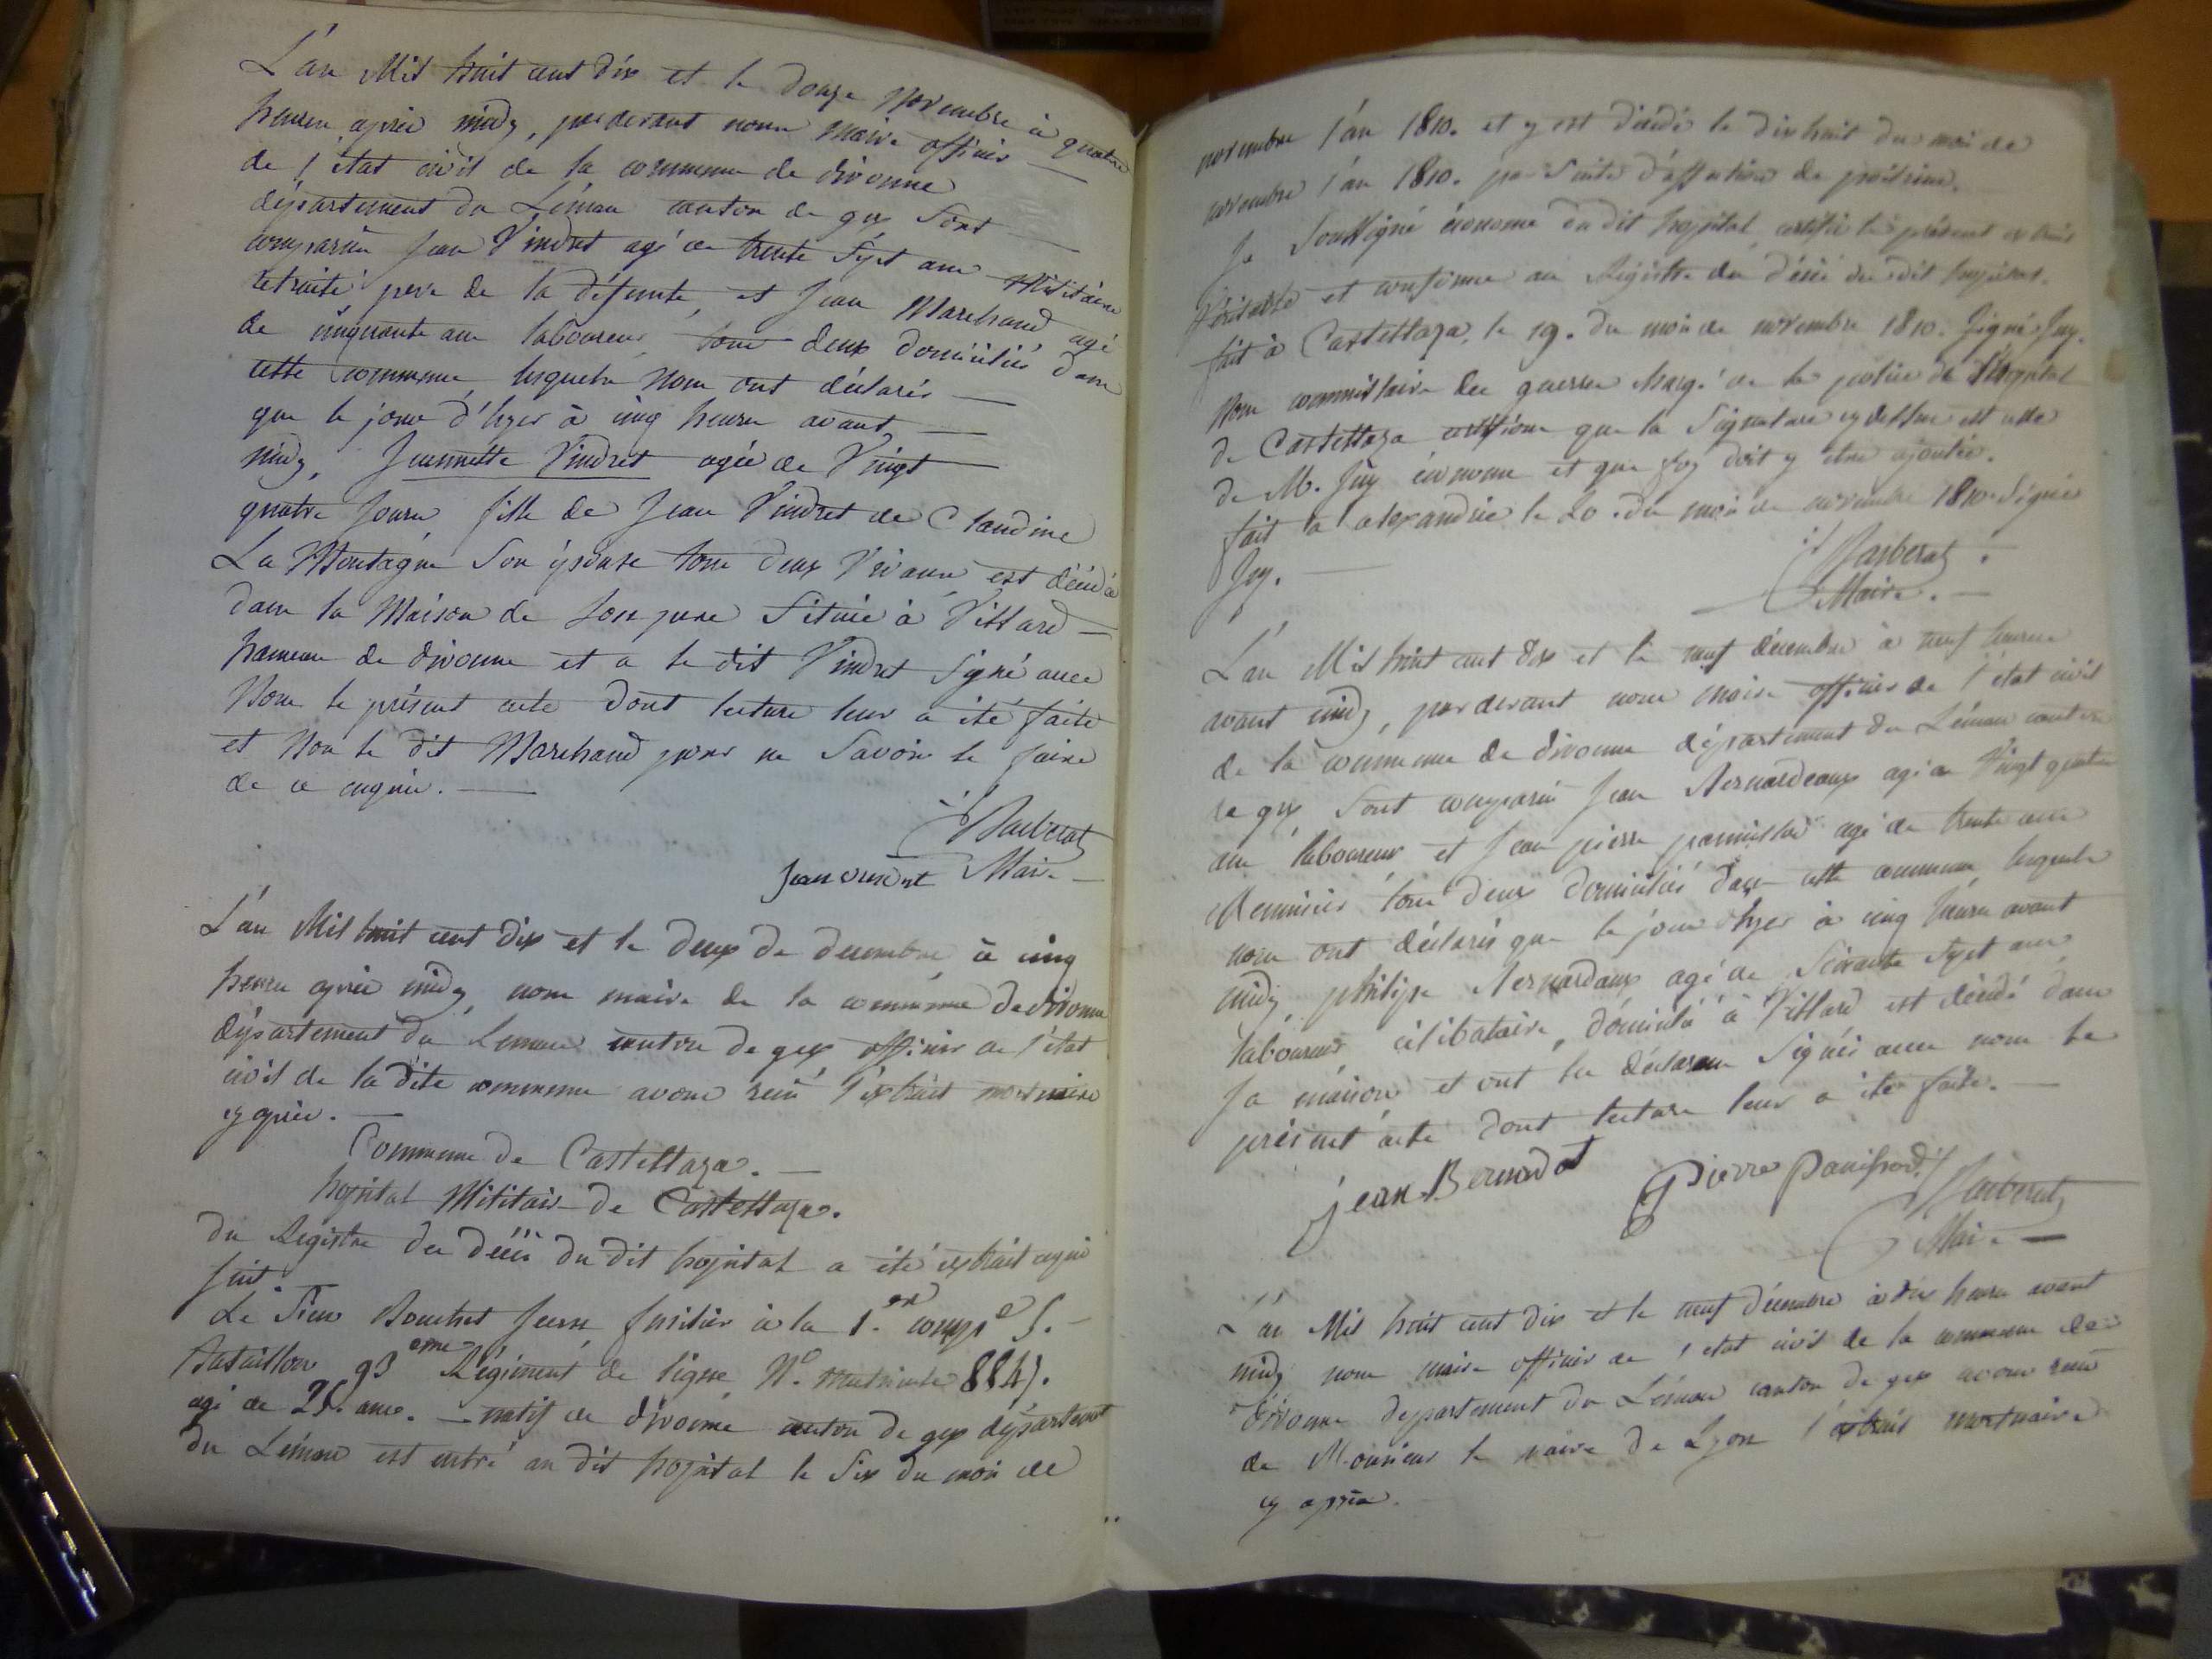 L'an Mil huit cent dix et le douze Novembre à quatre
heures après midy, pardevant nous Maire officier
de l'état civil de la commune de divonne
département du Léman canton de gex Sont
comparûs Jean Vindret agé de trente Sept ans Militaire
retraité pere de la défunte, et Jean Marchand agé
de cinquante ans laboureur tous deux domiciliés dans
cette commune, lesquels Nous ont déclarés
que le jour d'hyer à cinq heures avant
midy, Jeannette Vindret agée de Vingt
quatre Jours fille de Jean Vindret de Claudine
La Montagne Son épouse tous deux Vivans, est décédé
dans la Maison de Son pere Située à Villard
hameau de divonne et a le dit Vindret Signé avec
Nous le présent acte dont lecture leur a été faite
et Non le dit Marchand pour ne Savoir le faire
de ce enquis.
Barberat
Jean vindret Maire
L'an Mil huit cent dix et le deux de decembre à cinq
heures après midy, nous maire de la commune de divonne
département du Leman canton de gex officier de l'état
civil de la dite commune avons reçu l'extrait mortuaire
cy après.
Commune de Castellazo.
hopital Militaire de Castellazo.
du Registre des décès du dit hopital a été extrait ce qui
suit.
Le Sieur Bouchet Jean fusilier à la 1.ere compie 5.
Bataillon 93eme Régiment de ligne N.o matricule 8845.
agé de 25. ans. natif de divonne canton de gex département
du Léman est entré au dit hopital le Six du mois de
novembre l'an 1810. et y est décédé le dix huit du mois de
novembre l'an 1810. par Suite d'affection de poitrine.
Je Soussigné économe du dit hopital certifie le présent extrait
Véritable et conforme au Registre des décès du dit hopital.
fait à Castellazo, le 19. du mois de novembre 1810. Signé Juy.
Nous commissaire des guerres chargé de la police de l'hopital
de Castellazo certifions que la Signature cy dessus est celle
de M. Juy économe et que foy doit y etre ajoutée.
fait à alexandrie le 20. du mois de novembre 1810. Signé
Juy.
Barberat
Maire.
L'an Mil huit cent dix et le neuf décembre à neuf heures
avant midy, pardevant nous maire officier de l'état civil
de la commune de divonne département du Léman canton
de gex Sont comparûs Jean Bernardeaux agé de Vingt quatre
ans laboureur et Jean pierre panissod agé de trente ans
Menuisier tous deux domiciliés dans cette commune, lesquels
nous ont déclarés que le jour d'hyer à cinq heures avant
midy, philipe Bernardaux agé de Soixante Sept ans,
laboureur célibataire, domicilié à Villard est décédé dans
Sa maison et ont les déclarans Signés avec nous le
présent acte dont lecture leur a été faite.
jean Bernadot Pierre Panissod Barberat
Maire
L'an Mil huit cent dix et le neuf décembre à dix heures avant
midy nous maire officier de l'état civil de la commune de
divonne département du Léman canton de gex avons reçu
de Monsieur le maire de Lyon l'extrait mortuaire
cy après.